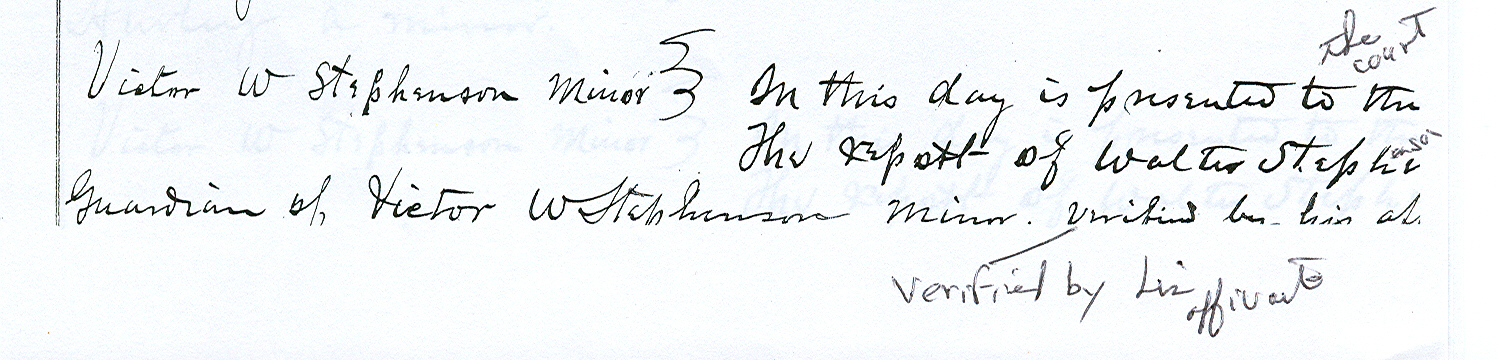 the
court
Victor W Stephenson Minor } On this day is presented to the
The report of Walter Stephe
enson
Guardian of Victor W Stephenson Minor. verified by his af
verified by his
affivavt